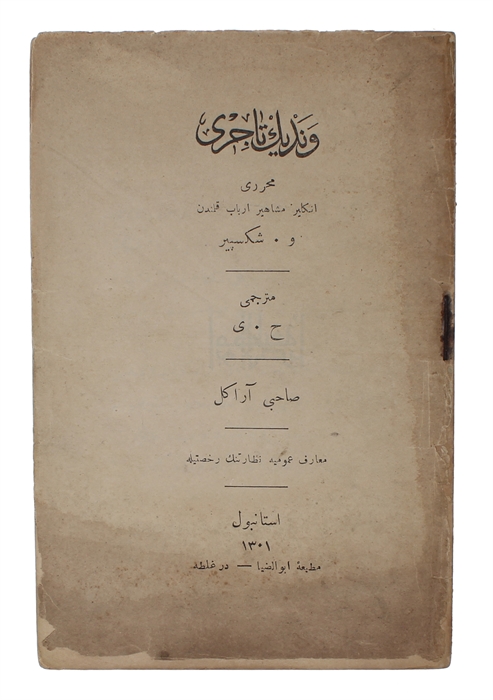 وَنديك تاجرى
محررى
انكليز مشاهير ارباب قلمندن
و . شكسپير
مترجمى
ح . ى
صاحبى آراكل
معارف عموميه نظارتنك رخصتيله
استانبول
١٣٠١
مطبعۀ ابوالضيا — در غلطه